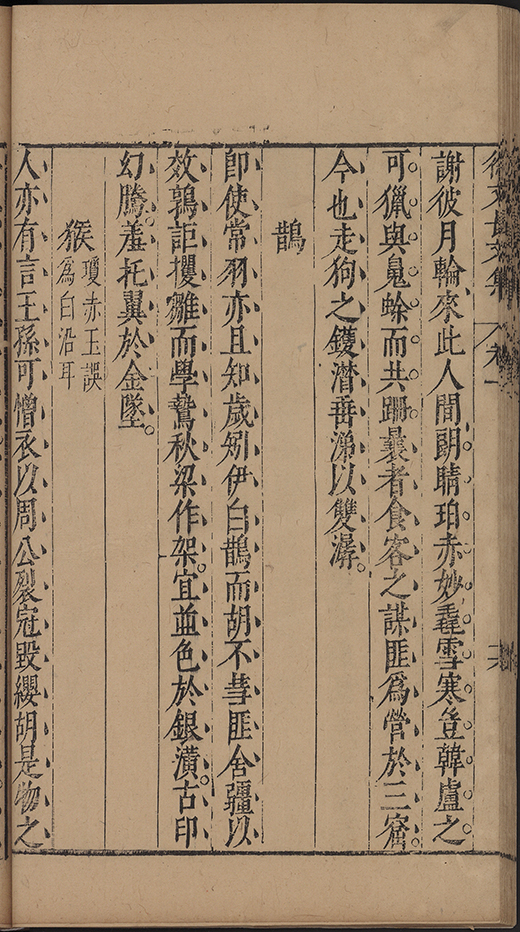 徐文長文集 卷一 六
謝彼月輪來此人間朗睛珀赤妙毳雪寒豈韓盧之
可獵與鳧蜍而共跚曩者食客之謀匪爲營於三窟
今也走狗之鑊潸垂涕以雙潺
鵲
即使常羽亦且知歲矧伊白鵲而胡不彗匪舍疆以
效鶉詎攫雛而學鷙秋梁作架宜並色於銀潢古印
幻騰羞托翼於金墜
猴 瓊赤玉誤
爲白沿耳
人亦有言王孫可憎衣以周公裂冠毀纓胡是物之